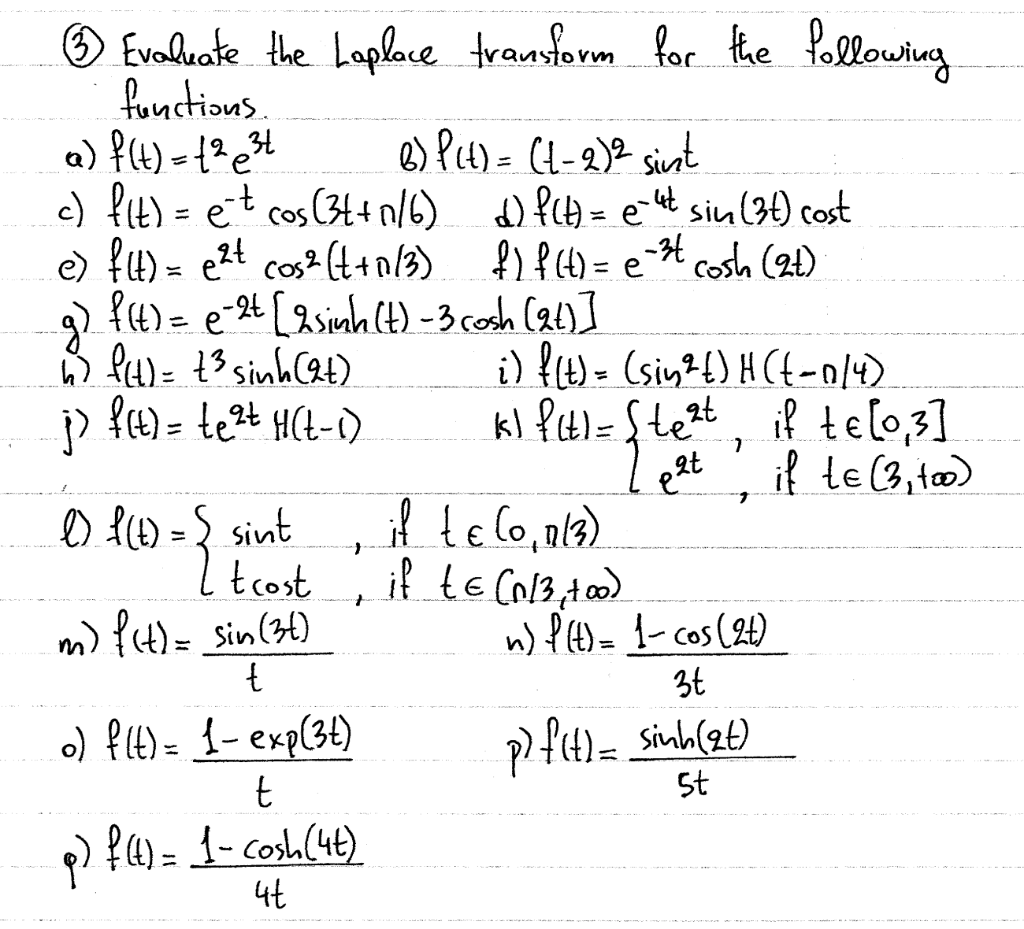 ③ Evaluate the Laplace transform for the following
functions.
a) f(t) = t²e^{3t} b) f(t) = (t-2)² sint
c) f(t) = e^{-t} cos(3t+π/6) d) f(t) = e^{-4t} sin(3t) cost
e) f(t) = e^{2t} cos²(t+π/3) f) f(t) = e^{-3t} cosh(2t)
g) f(t) = e^{-2t} [2sinh(t) - 3cosh(2t)]
h) f(t) = t³ sinh(2t) i) f(t) = (sin²t) H(t-π/4)
j) f(t) = te^{2t} H(t-1) k) f(t) = { te^{2t}, if t∈[0,3]
e^{2t}, if t∈(3,+∞)
l) f(t) = { sint, if t∈[0,π/3)
tcost, if t∈[π/3,+∞)
m) f(t) = sin(3t)/t n) f(t) = 1-cos(2t)/3t
o) f(t) = 1-exp(3t)/t p) f(t) = sinh(2t)/5t
q) f(t) = 1-cosh(4t)/4t